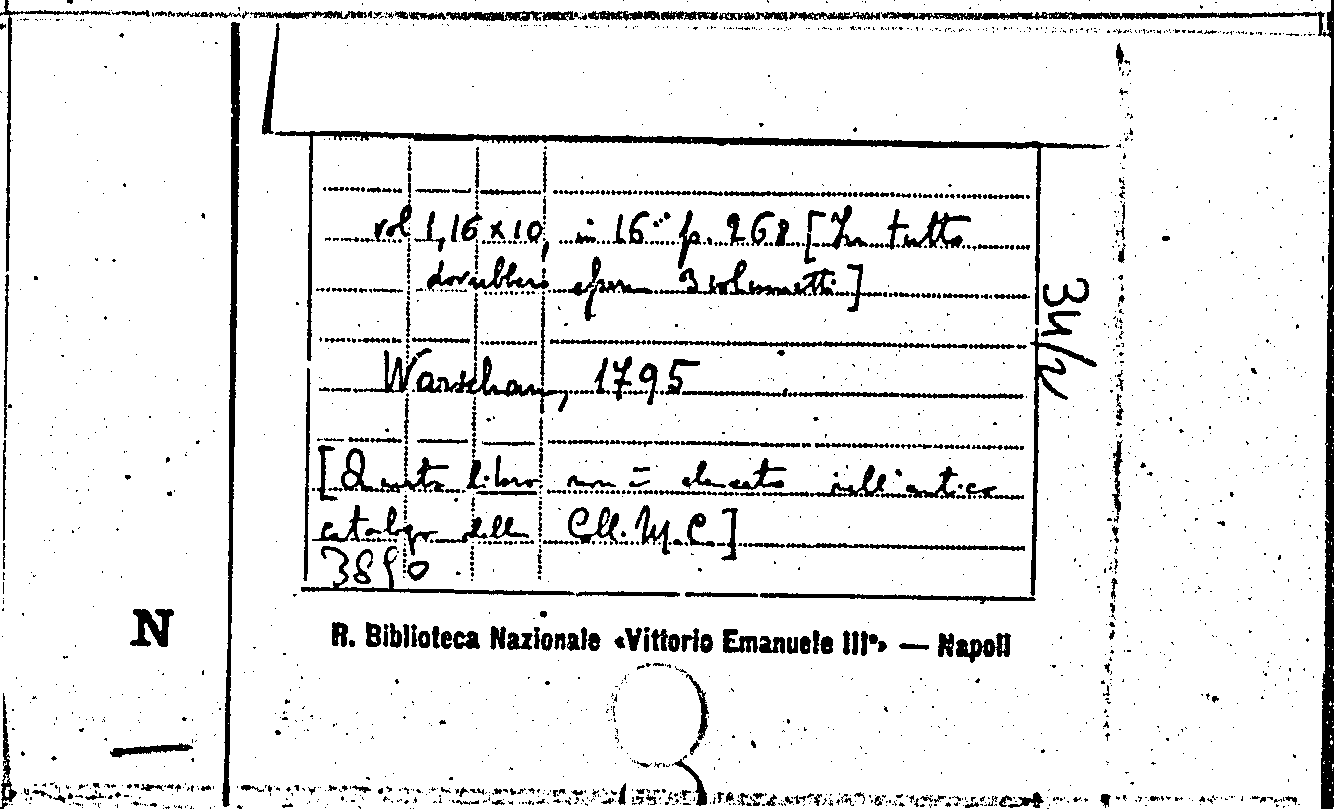 vol 1, 16 x 10, in 16° p. 268 [In tutto
dovrebbero essere 3 volumetti]
Warschau, 1795
[Questo libro non è elencato nell'antico
catalogo della Coll. M. C.]
3890
34/2
N
R. Biblioteca Nazionale «Vittorio Emanuele III°» — Napoli